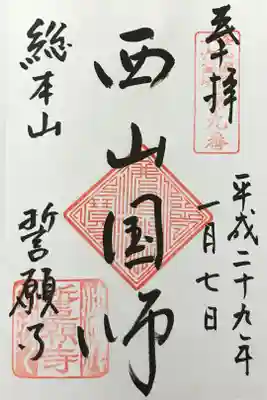 奉拝
平成二十九年
一月七日
西山国師
総本山
誓願寺